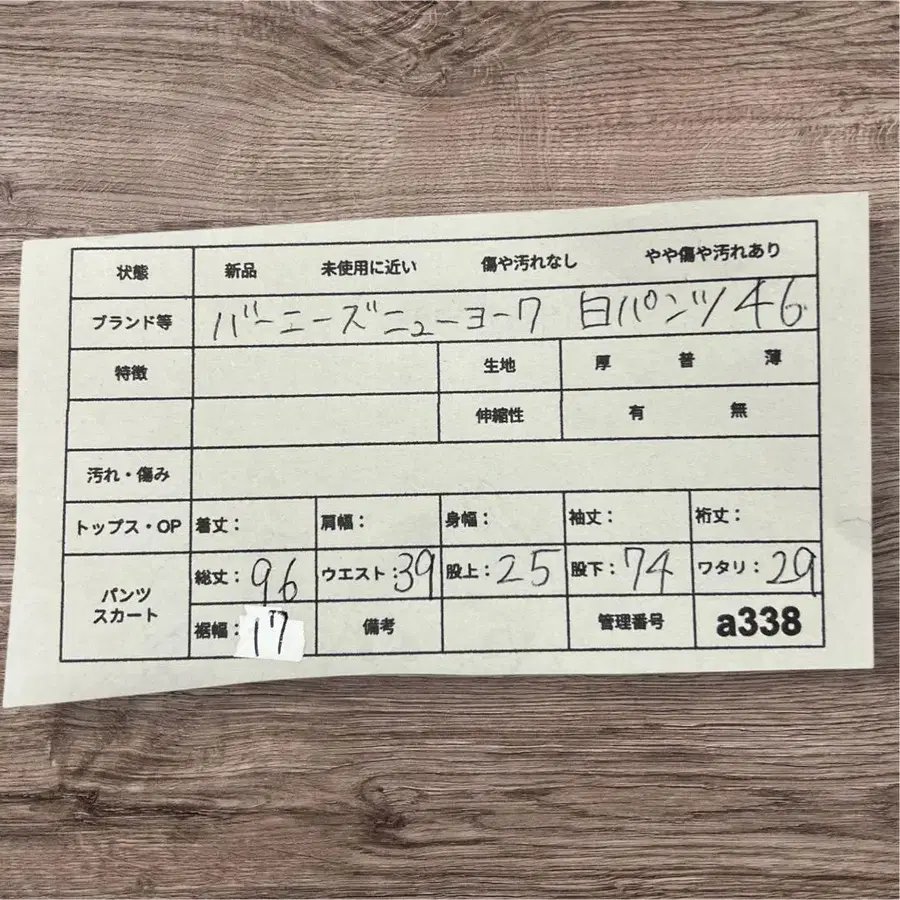 状態 新品 未使用に近い 傷や汚れなし やや傷や汚れあり
ブランド等 バーニーズニューヨーク 白パンツ 46
特徴 生地 厚 普 薄
伸縮性 有 無
汚れ・傷み
トップス・OP 着丈： 肩幅： 身幅： 袖丈： 裄丈：
パンツ スカート 総丈：96 ウエスト：39 股上：25 股下：74 ワタリ：29
裾幅：17 備考 管理番号 a338